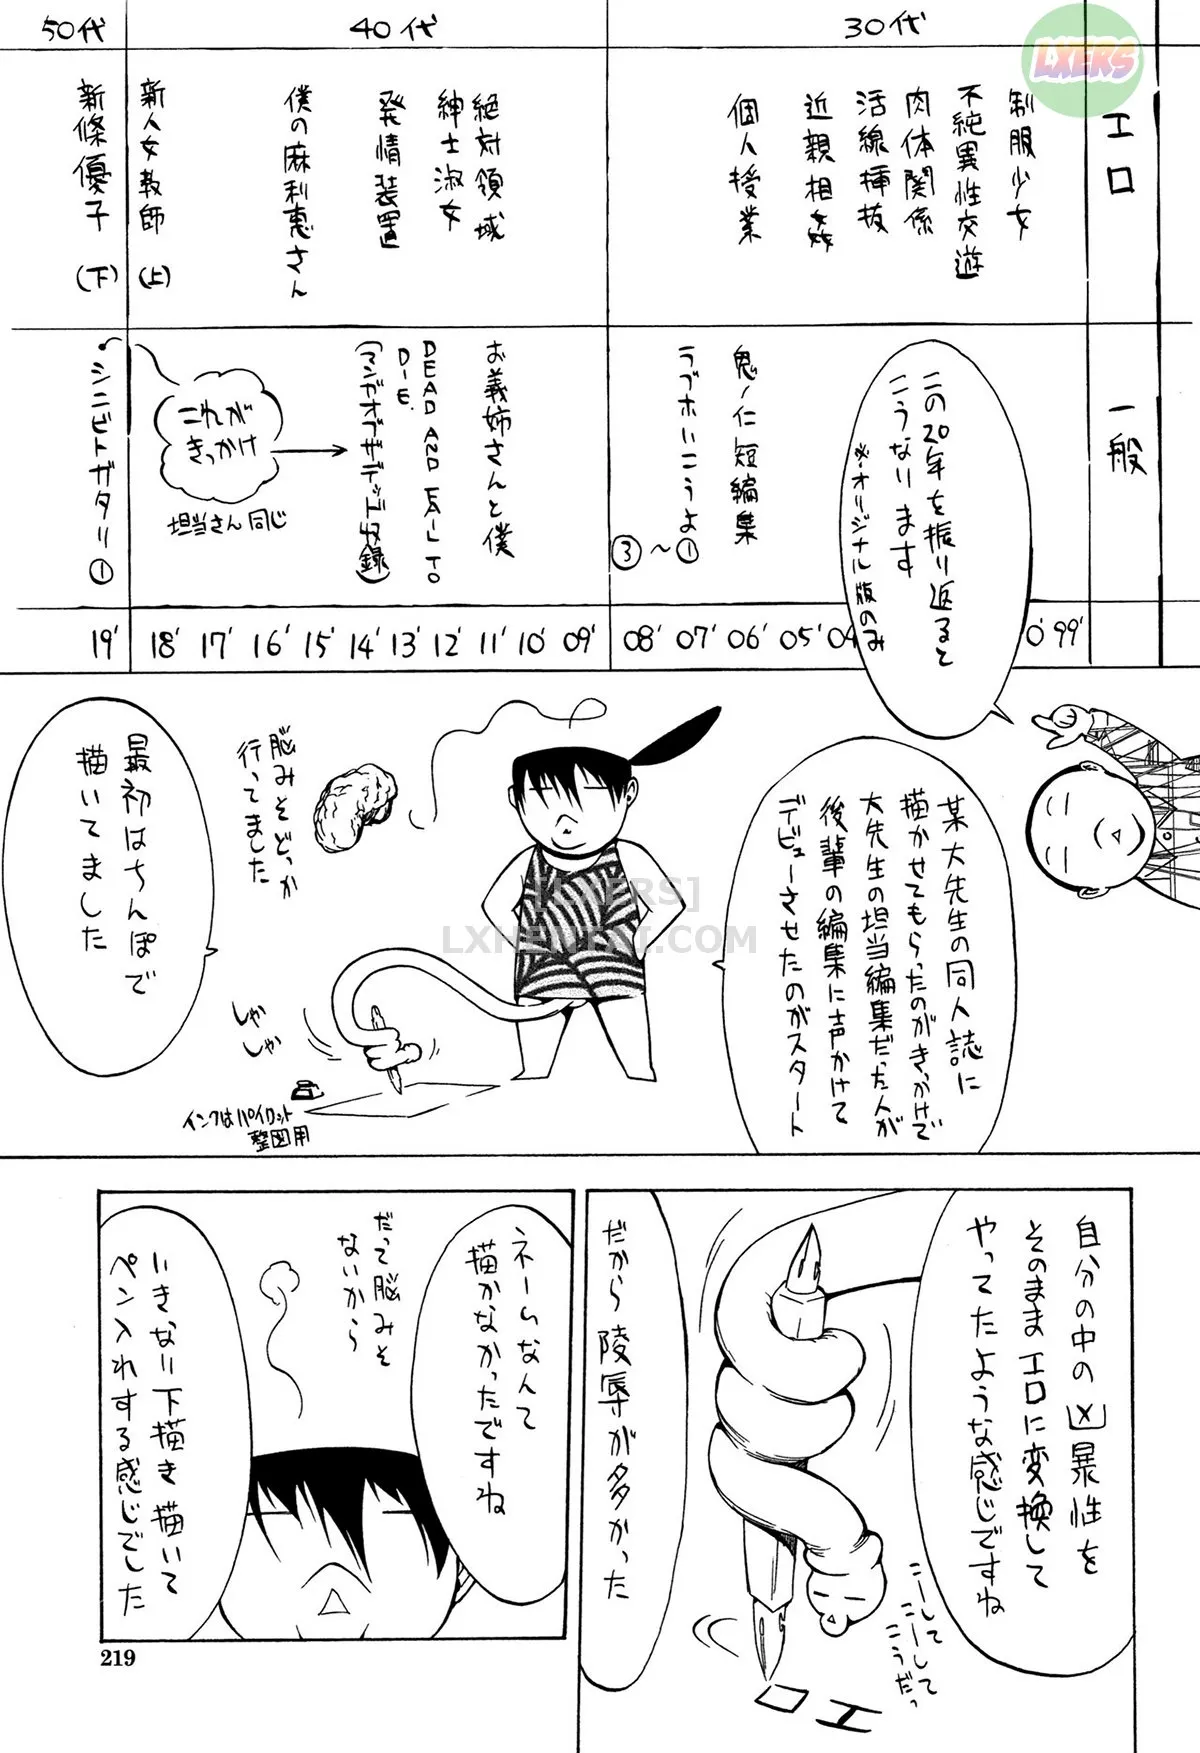 エロ
一般
30代
40代
50代
制服少女
不純異性交遊
肉体関係
活線挿抜
近親相姦
個人授業
絶対領域
紳士淑女
発情装置
僕の麻利恵さん
新人女教師(上)
新條優子(下)
鬼ノ仁短編集
ラブホいこうよ
①〜③
お義姉さんと僕
DEAD AND FAIL TO
DIE.
(マンガオブザデッド収録)
これが
きっかけ
担当さん同じ
シニビトガタリ①
99'
0'
04
05'
06'
07'
08'
09'
10'
11'
12'
13'
14'
15'
16'
17'
18'
19'
この20年を振り返ると
こうなります
※オリジナル版のみ
某大先生の同人誌に
描かせてもらったのがきっかけで
大先生の担当編集だった人が
後輩の編集に声かけて
デビューさせたのがスタート
脳みそどっか
行ってました
最初はちんぽで
描いてました
しゃか
しゃか
インクはパイロット
製図用
自分の中の凶暴性を
そのままエロに変換して
やってたような感じですね
こーして
こーして
こうだっ
エロ
だから陵辱が多かった
ネームなんて
描かなかったですね
だって脳みそ
ないから
いきなり下描き描いて
ペン入れする感じでした
219
LXERS
[LXERS]
LXHENTAI.COM